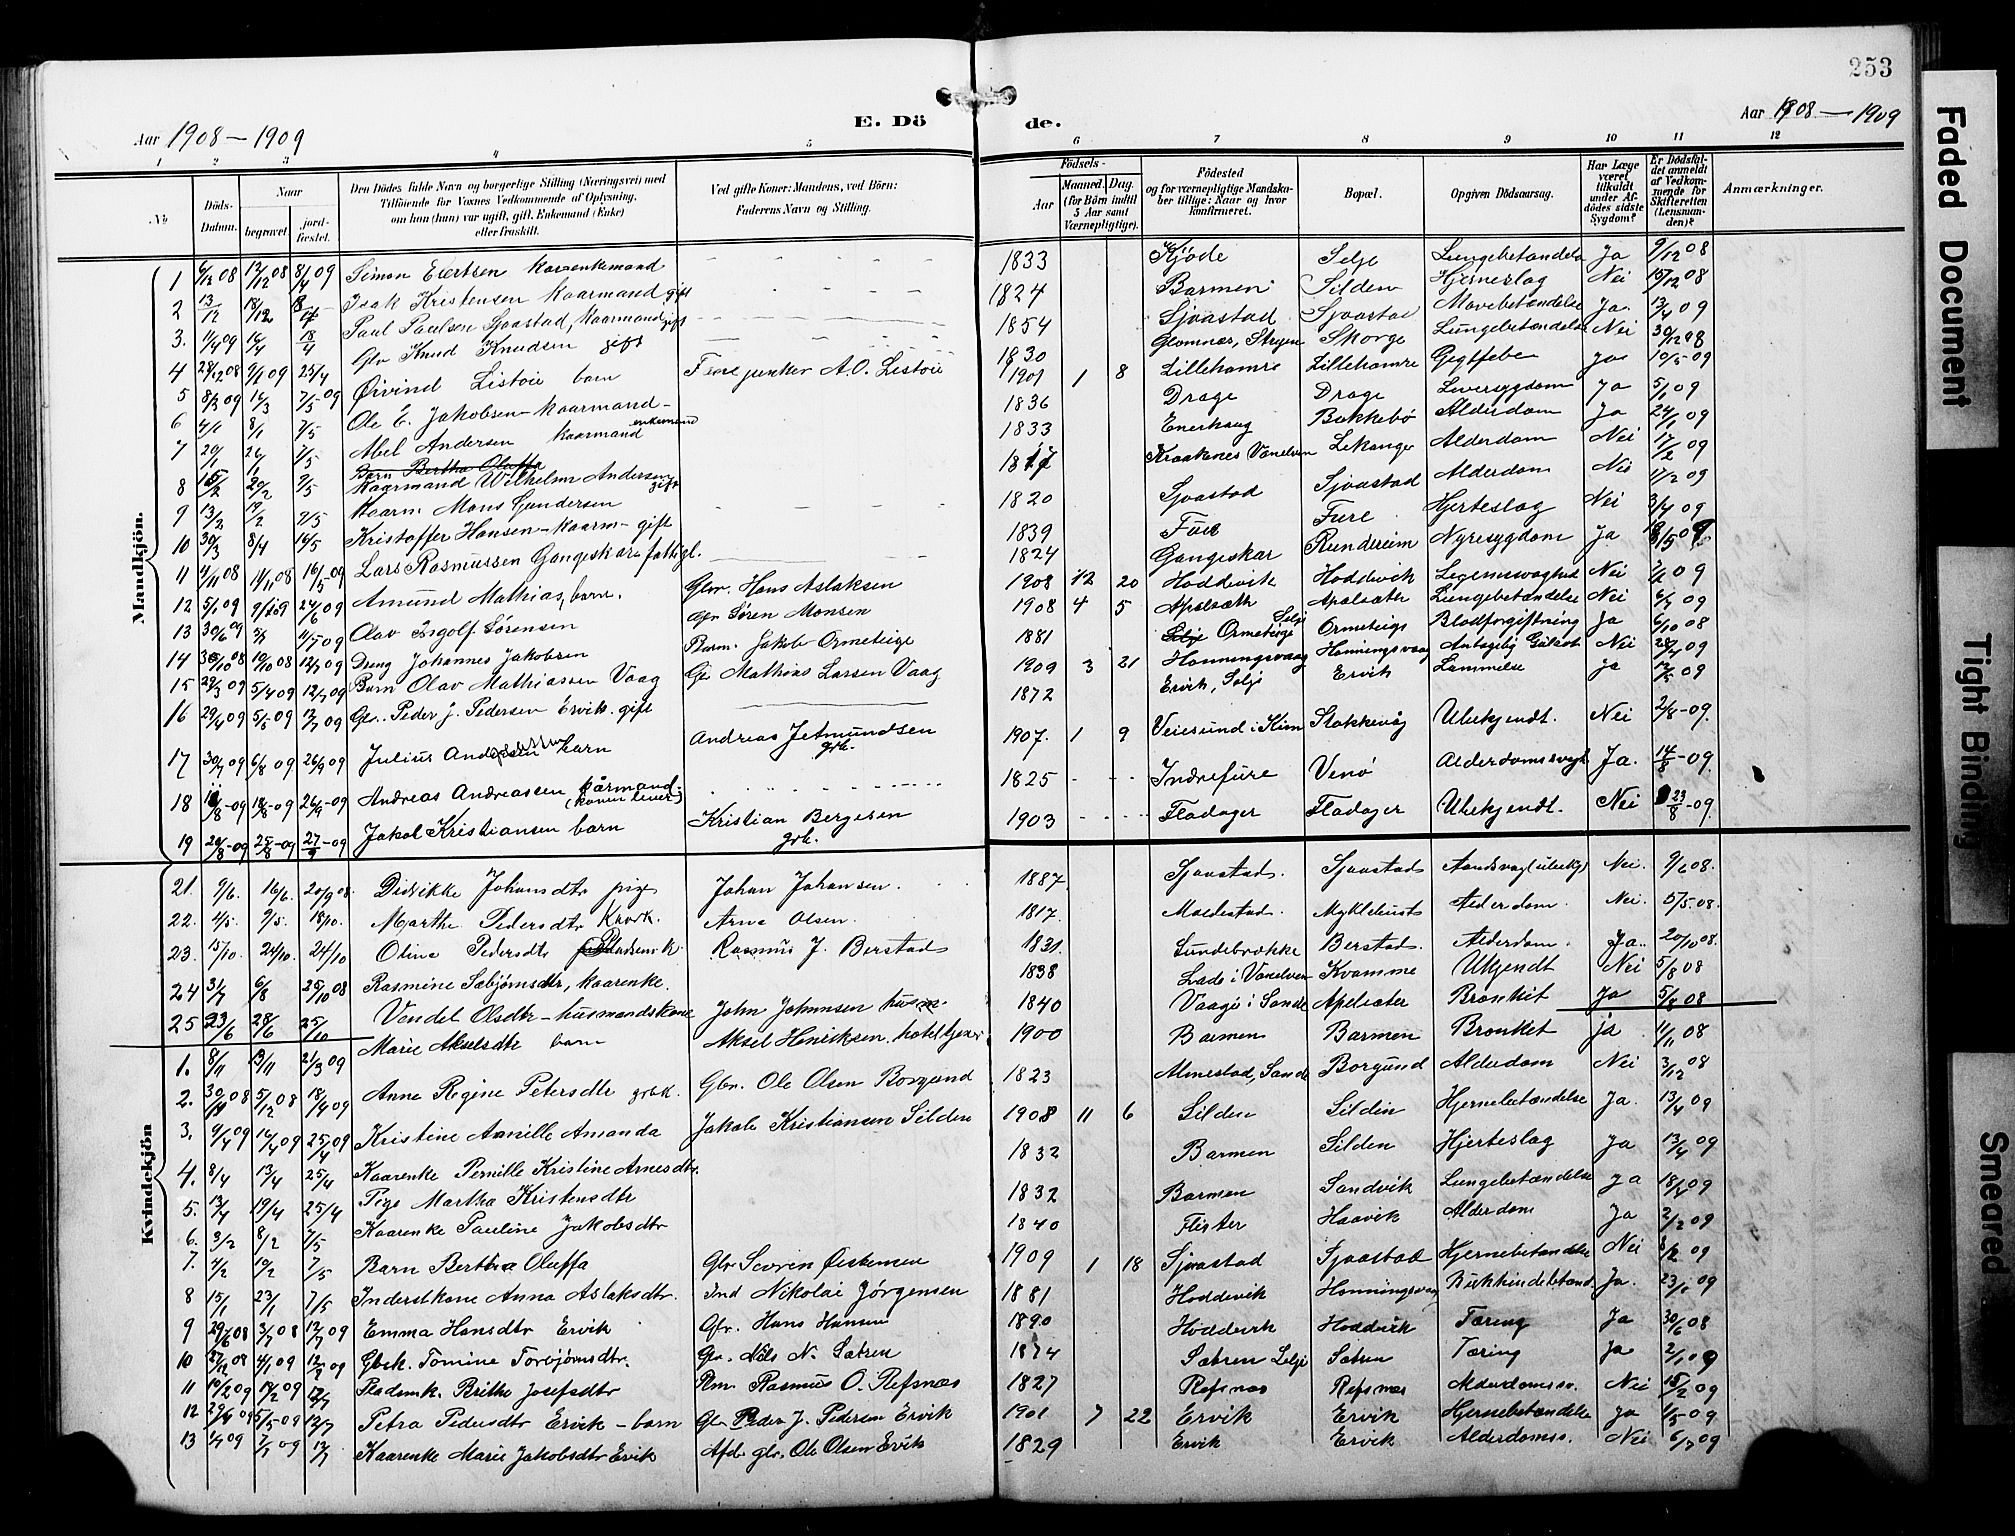 253
Aar 1908 – 1909
E. Dö de.
Aar 1908 – 1909
1 2 3 4 5 6 7 8 9 10 11 12
No
Döds-Datum.
Naar
begravet.
jord-fæstet.
Den Dödes fulde Navn og borgerlige Stilling (Næringsvei) med Tilföiende for Voxnes Vedkommende af Oplysning, om han (hun) var ugift, gift, Enkemand (Enke) eller fraskilt.
Ved gifte Koner: Mandens, ved Börn: Faderens Navn og Stilling.
Födsels-
Aar
Maaned. Dag.
(for Börn indtil 5 Aar samt Værnepligtige).
Födested og for værnepligtige Mandskaber tillige: Naar og hvor konfirmeret.
Bopæl.
Opgiven Dödsaarsag.
Har Læge været tilkaldt under Afdödes sidste Sygdom?
Er Dödsfaldet anmeldt af Vedkommende for Skifteretten (Lensmanden)?
Anmærkninger.
Mandkjön.
1 6/12 08 12/12 08 8/4 09 Simon Eiertsen kaarenkemand 1833 Kjöde Selje Lungebetændelse Ja 9/12 08
2 13/12 18/12 Isak Kristensen kaarmand gift 1824 Barmen Silden Hjerneslag Nei 15/12 08
3. 11/4 09 16/4 18/4 Paul Paulsen Sjaastad, kaarmand gift 1854 Sjaastad Sjaastad Mavebetændelse Ja. 13/4 09
4 28/12 08 2/1 09 25/4 Gbr Knud Knudsen gift 1830 Glomnæs, Stryn Skorge Lungebetændelse Nei 30/12 08
5 8/3 09 16/3 7/5 09 Öivind Listöie barn A.O. Listöie 1901 1 8 Lillehamre Lillehamre Gigtfeber ja 10/5 09
6 4/1 8/1 7/5 Ole E. Jakobsen – kaarmand – 1836 Drage Drage Leversygdom Ja 5/1 09
7 20/1 26/1 7/5 Abel Andersen kaarmand enkemand 1833 Enerhaug Bakkebö Alderdom Ja 24/1 09
Barn Bertha Oluffa
8 15/2 20/2 7/5 Kaarmand Wilhelm Andersen gift 1817 Kraakenes Vanelven Lekanger Alderdom Nei 17/2 09
9 13/2 19/2 7/5 Kaarm Mons Gundersen 1820 Sjaastad Sjaastad Alderdom Nei 17/2 09
10 30/3 8/4 16/5 Kristoffer Hansen – kaarm – gift 1839 Fure Fure Hjerteslag Nei 3/4 09
11 4/11 08 11/11 08 16/5 09 Lars Rasmussen Gangeskar fattigl. 1824 Gangeskar Rundereim Nyresygdom Ja
12 5/1 09 9/1 09 24/6 09 Amund Mathias, barn. Gbr. Hans Aslaksen 1908 12 20 Hoddevik Hoddevik Legemssvaghed Nei 7/2 09
13 30/6 09 5/7 11/7 09 Olav Ingolf Sörensen Gbr Sören Monsen 1908 4 5 Apalsæth Apalsæter Lungebetændelse Nei 6/7 09
14 3/10 08 10/10 08 12/7 09 Dreng Johannes Jakobsen Barm. Jakob Ormeteige 1881 Ormeteige Selje Ormeteige Blodforgiftning Ja 6/10 08
15 29/3 09 5/4 09 12/7 09 Barn Olav Mathiassen Vaag Gbr Mathias Larsen Vaag 1909 3 21 Honningsvaag Honningsvaag Nei 28/4 09
16 29/4 09 5/5 09 12/7 09 Gbr. Peder J. Pedersen Ervik. gift 1872 Ervik, Selje Ervik Lammelse ja 12/5 09
17 30/7 09 6/8 09 26/9 09 Julius Andreassen barn Andreas Jetmundsen grb. 1907. 1 9 Veiesund i Kinn Stokkevåg Ubekjendt. Nei 2/8 – 09.
18 11/8 – 09 18/8 – 09 26/9 – 09 Andreas Andreassen kårmand. (konen lever) 1825 Indrefure Venö Alderdomssvagh Ja. 14/8 – 09.
19 20/8 – 09 25/8 – 09 27/9 – 09 Jakob Kristiansen barn Kristian Bergesen grb. 1903 Fladager Fladager Ubekjendt. Nei 23/8 – 09.
21. 9/6. 16/6. 20/9 08. Didrikke Johansdtr pige Johan Johansen. 1887. Sjaastad. Sjaastad Nei. 9/6 08.
22. 4/5. 9/5. 18/10. Marthe Pedersdtr Krark. Arne Olsen. 1817. Moldestad. Myklebust Alderdom. Nei. 5/5. 08.
23. 15/10. 24/10. 24/10 Oline Pedersdtr Pladsem. k. Rasmus J. Berstad 1831. Sundebrække Berstad. Alderdom. Ja. 20/10 08.
24 31/7 6/8 25/10 08 Rasmine Sæbjörnsdtr, kaarenke. 1838 Lade i Vanelven Kvamme Ukjendt Nei 5/8 08
25 23/6 28/6 25/10 Vendel Olsdtr – husmandskone John Johnnsen husm. 1840 Vaage i Sande Apelsæter Bronkit Ja 5/8 08
Kvindekjön
1. 8/11 13/11 21/3 09 Marie Akselsdtr barn Aksel Henriksen, hotelkjener 1900 Barmen Barmen Bronkit ja 11/11 08
2. 30/11 08 5/12 08 18/4 09 Anne Regine Petersdtr grbk. Gbr. Ole Olsen Borgund 1823 Almestad, Sande Borgund Alderdom Nei 3/12 08
3. 9/4 09 16/4 09 25/4 09 Kristine Amille Amanda Jakob Kristiansen Silden 1908 11 6 Silden Silden Hjernebetændelse Ja. 13/4 09
4. 8/4 13/4 25/4 Kaarenke Pernille Kristine Arnesdtr. 1832 Barmen Silden Hjerteslag Ja 13/4 09
5. 13/4 19/4 25/4 Pige Martha Kristensdtr 1832 Barmen Sandvik Lungebetændelse ja 18/4 09
6. 3/2 8/2 7/5 Kaarenke Pauline Jakobsdtr 1840 Flister Haavik Alderdom Ja 2/2 09
7. 4/2 10/2 7/5 Barn Bertha Oluffa Gbr Severin Öiestensen 1909 1 18 Sjaastad Sjaastad Hjernebetændelse Nei 8/2 09
8 15/1 23/1 7/5 Inderstkone Anna Aslaksdtr. Ind Nikolai Jörgensen 1881 Hoddevik Honningsvaag Bukhindebetænd. Ja. 23/1 09
9 29/6 08 3/7 08 12/7 09 Emma Hansdtr Ervik Gbr. Hans Hansen 1890 Hoddevik Hoddevik Tæring Ja 30/6 08
10 27/12 08 4/1 09 12/7 09 Gbsk. Tomine Torbjörnsdtr. Gbr. Nils N. Sætren 1874 Sætren Selje Sætren Tæring Ja 2/1 09
11 10/2 09 17/2 09 12/7 Pladsmk. Brithe Josefsdtr Pm. Rasmus O. Refsnæs 1827 Refsnæs Refsnæs Alderdomssv. Nei 15/2 09
12 29/4 09 5/5 09 12/7 Petra Pedersdtr Ervik – barn Gbr Peder J. Pedersen Ervik 1901 7 22 Ervik Ervik Hjernebetændelse Ja 1/5 09
13 1/7 09 7/7 09 12/7 Kaarenke Marie Jakobsdtr Ervik Afd. gbr. Ole Olsen Ervik 1829 Ervik Ervik Alderdomssv. Nei 6/7 09
Faded Document
Tight Binding
Smeared